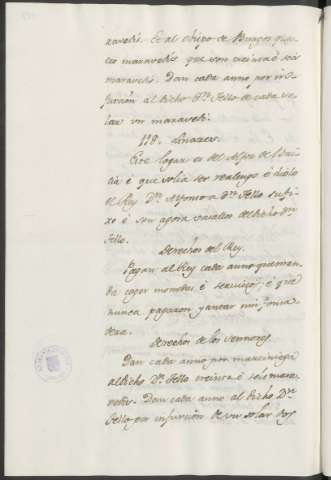 ravedis. E al obispo de Burgos qua-
tro maravedis que son treinta è seis
maravedis. Dan cada anno por infu-
rción al dicho Dn. Tello de cada so-
lar un maravedi.
119. Linares.
Este logar es del Alfoz de Bri-
cia è que solia ser realengo è diolo
el Rey Dn. Alfonso a Dn. Tello su fi-
xo è son agora vasallos del dicho Dn.
Tello.
Derechos del Rey.
Pagan al Rey cada anno quando man-
da coger monedas è servicios, è que
nunca pagaron yantar nin fonsa-
dera.
Derechos de los Sennores.
Dan cada anno por marciniega
al dicho Dn. Tello treinta è seis mara-
vedis. Dan cada anno al dicho Dn.
Tello por infurción de un solar dos